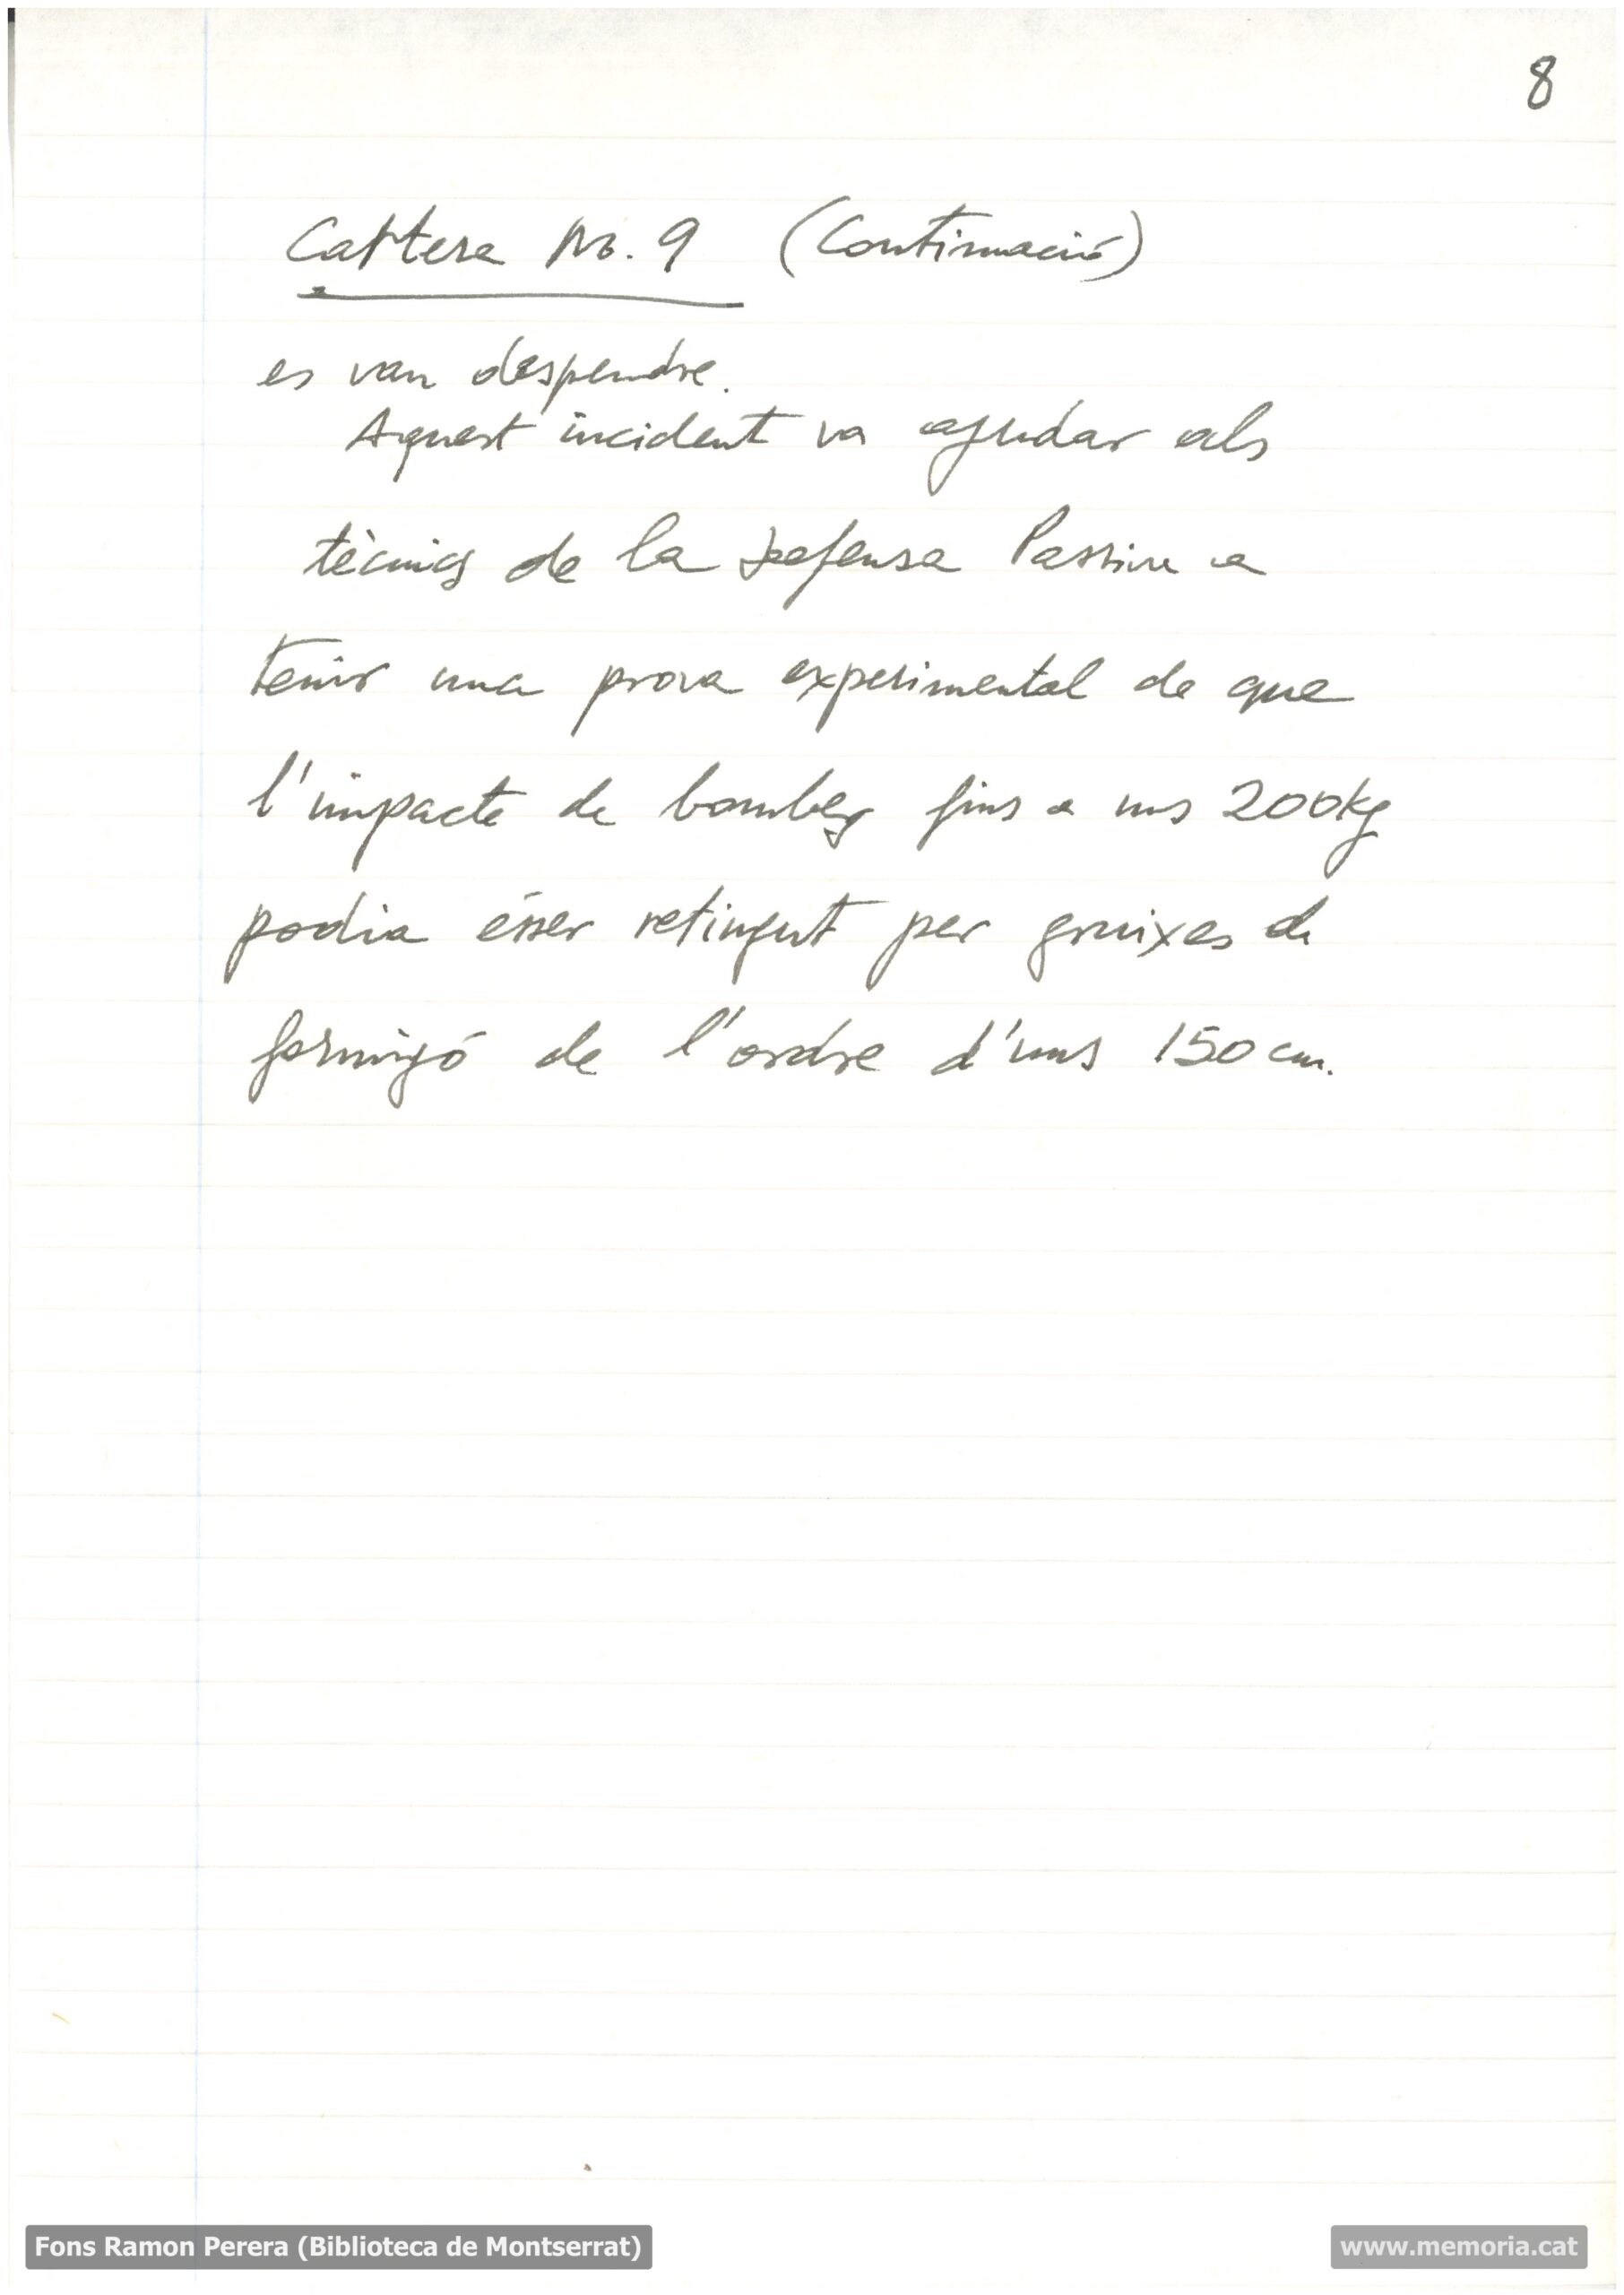 8
Cartera No. 9 (Continuació)
es van despendre.
Aquest incident va ajudar als
tècnics de la Defensa Passiva a
tenir una prova experimental de que
l'impacte de bombes fins a uns 200kg
podia ésser retingut per gruixes de
formigó de l'ordre d'uns 150 cm.
Fons Ramon Perera (Biblioteca de Montserrat)
www.memoria.cat